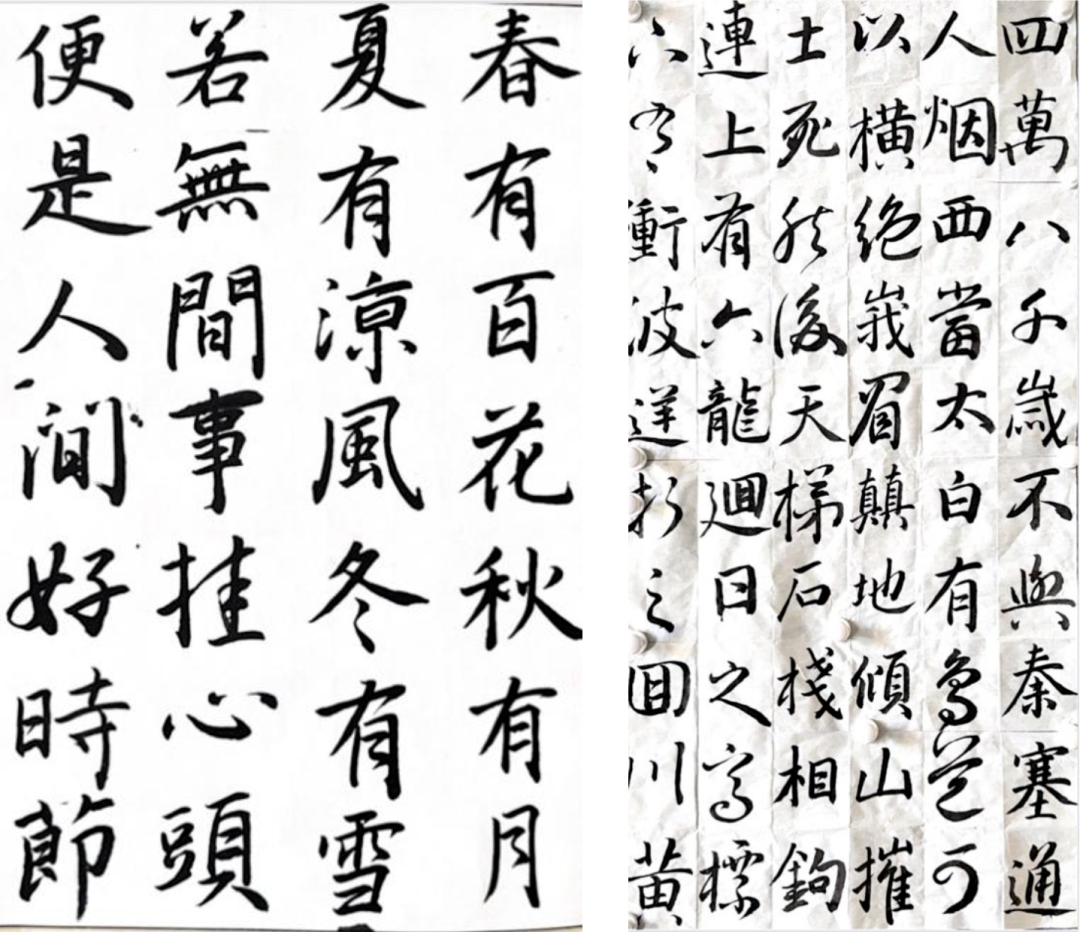 春有百花秋有月
夏有涼風冬有雪
若無間事挂心頭
便是人间好時節
四萬八千歲不與秦塞通
人烟西當太白有鳥道可
以橫絶峩眉顛地傾山摧
士死然後天梯石棧相鉤
連上有六龍迴日之高標
下有衝波逆折之回川黃